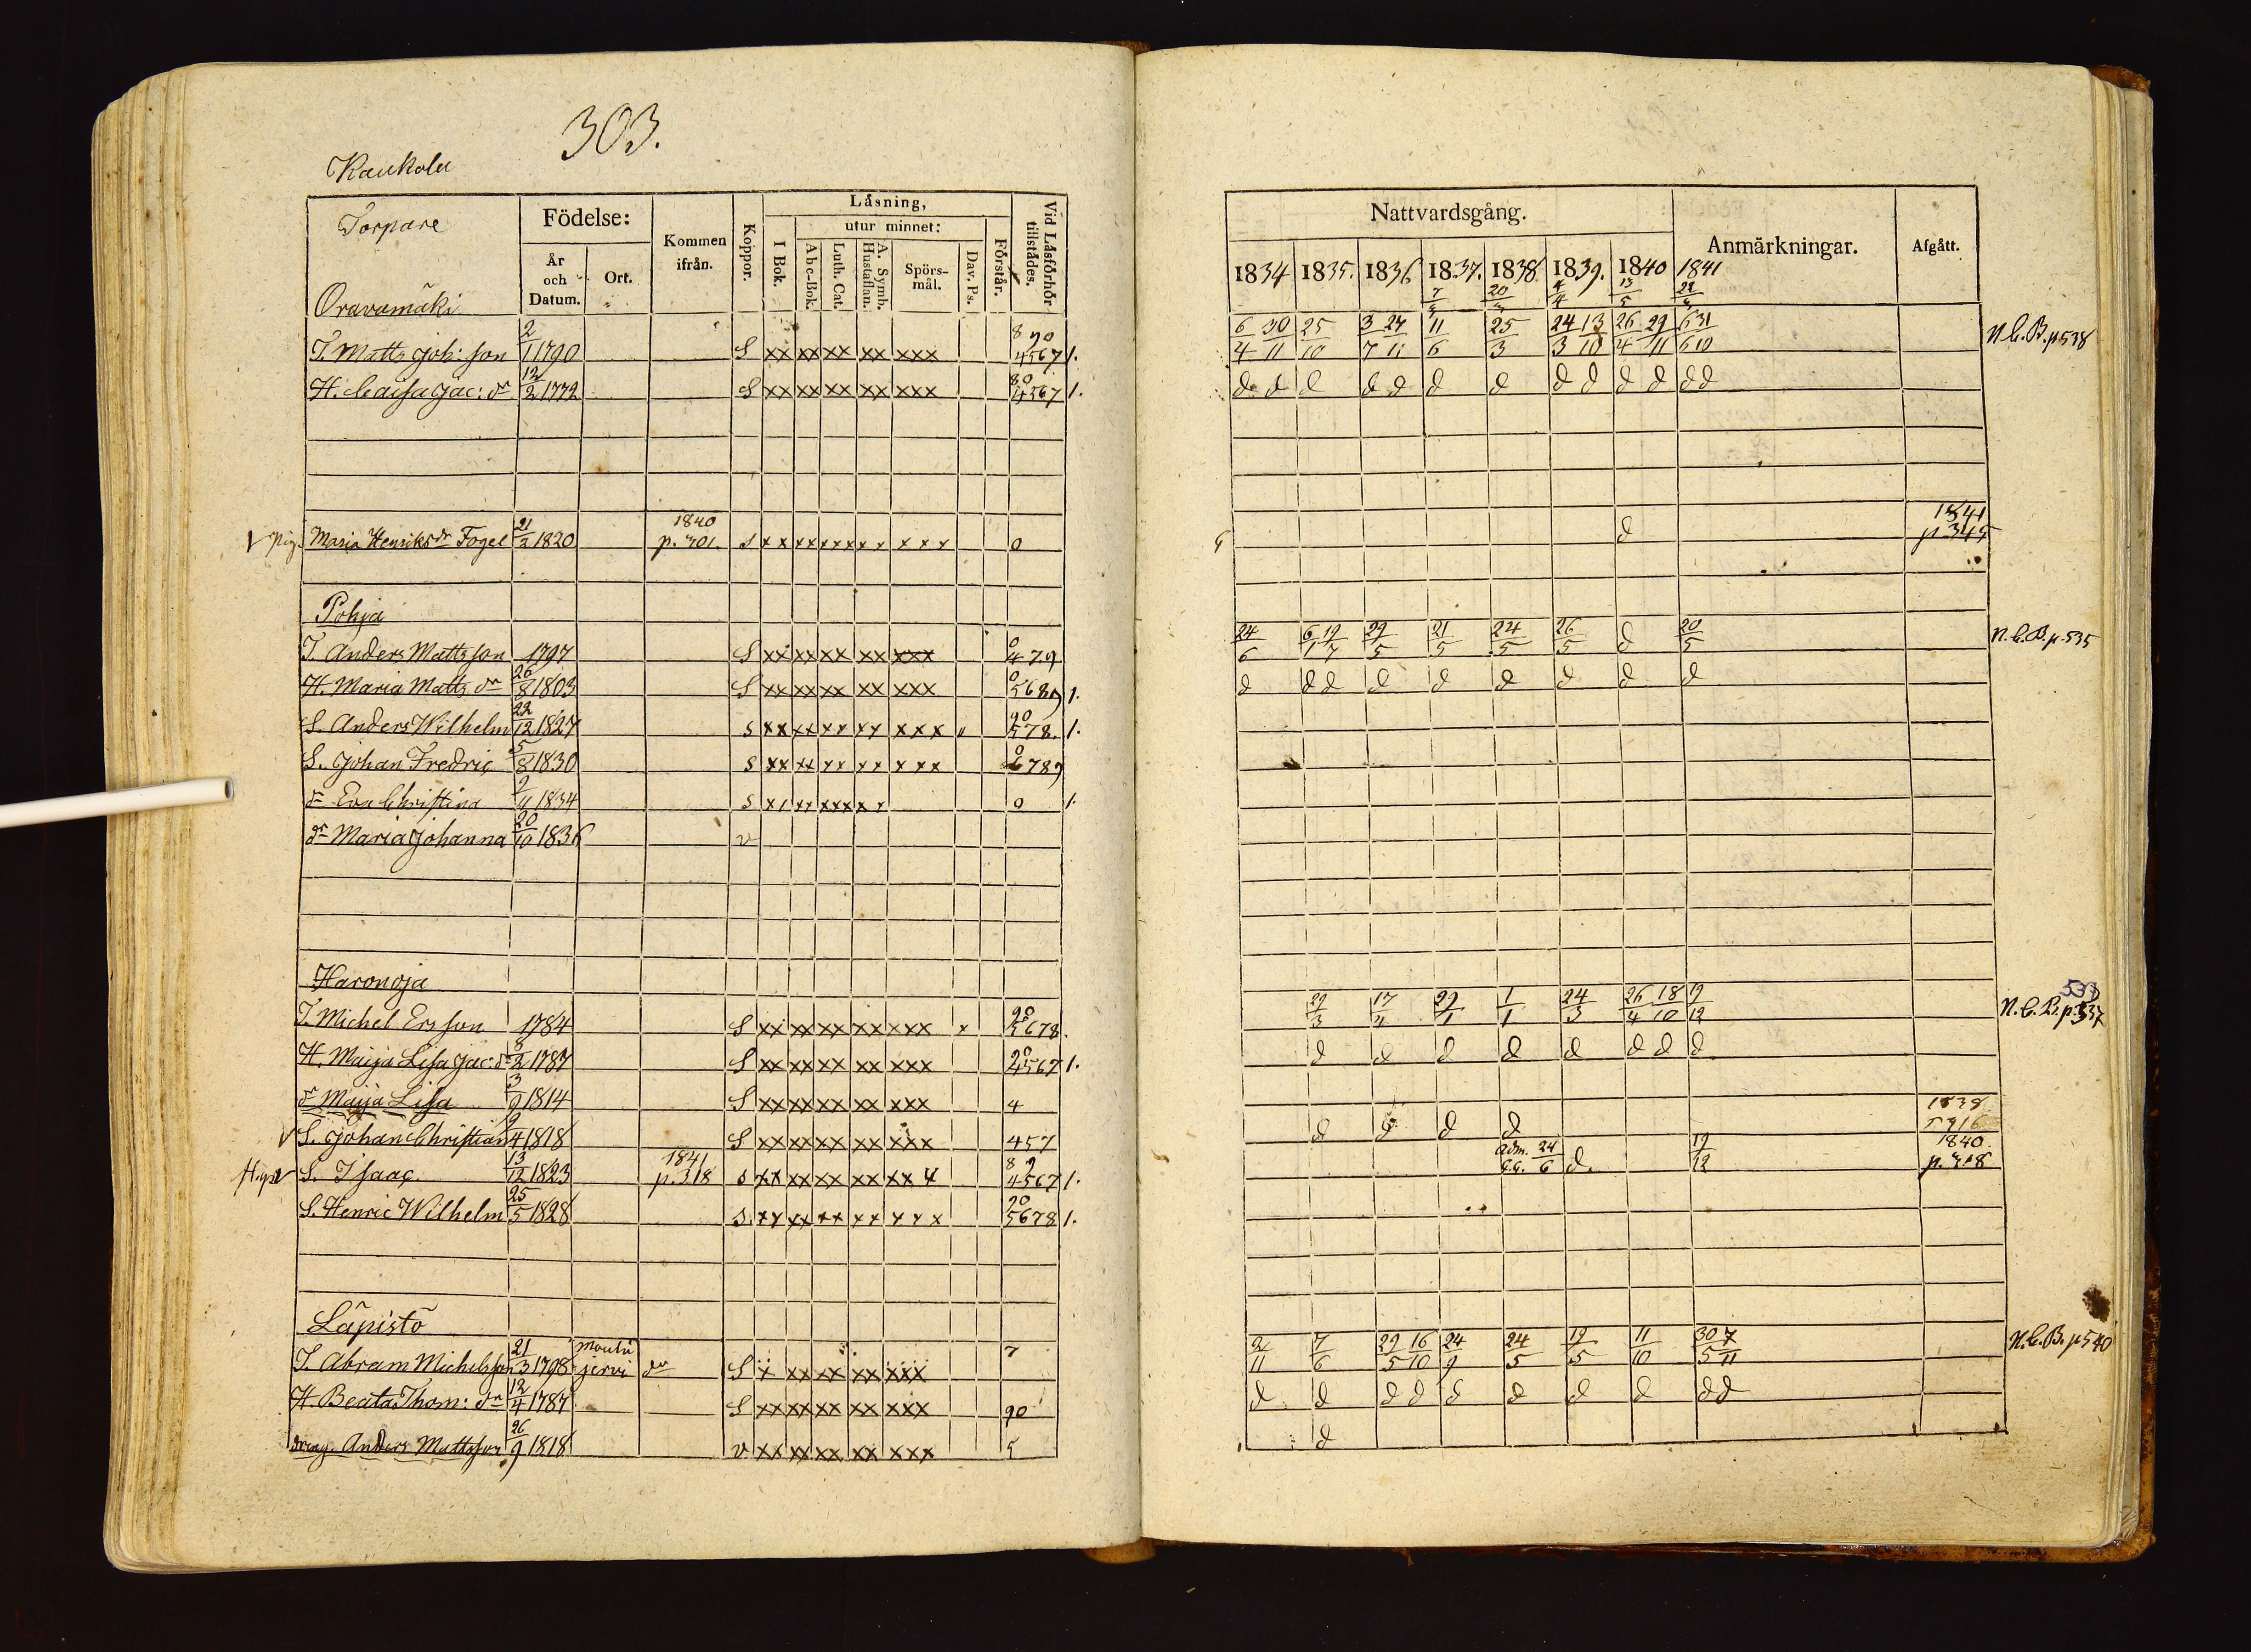 303.
Kaukola
Torpare
Oravamäki
Födelse:
År och Datum.
Ort.
Kommen ifrån.
Koppor.
Läsning,
I Bok.
utur minnet:
Abc-Bok.
Luth. Cat.
A. Symb. Hustaflan.
Spörsmål.
Dav. Ps.
Förstår.
Vid Läsförhör tillstädes.
Nattvardsgång.
1834 1835. 1836 1837. 1838 1839. 1840 1841
Anmärkningar.
Afgått.
T. Matts Joh: son 2/1 1790 S xx xx xx xx xxx 890 4567 1. 6/4 30/11 25/10 3/7 27/11 11/6 25/3 24/3 13/10 26/4 29/11 N.C.B. p 538
H. Caisa Jac: dr 12/2 1772 S xx xx xx xx xxx 80 4567 1. d d d d d d d d d d d d d
Pig. Maria Henriksdr Fogel 21/2 1820 1840 p. 301. s x x xx xxx x x x x x 0 d 1841 p 345
Pohja
T. Anders Mattsson 1797 S xx xx xx xx xxx 0 479 24/6 6/1 19/7 29/5 21/5 24/5 26/5 d 20/5 N.C.B. p. 535
H. Maria Matts dr 26/8 1803 S xx xx xx xx xxx 0 5689 1. d d d d d d d d d
S. Anders Wilhelm 22/12 1827 s xx xx xx xx xxx " 90 578. 1.
S. Johan Fredric 5/8 1830 s xx xx xx xx xxx 0 6789
dr Eva Christina 2/11 1834 s x x xx xxx x x 0 1.
dr Maria Johanna 20/10 1836 v
Haronoja
T. Michel Ersson 1784 S xx xx xx xx xxx x 90 5678. 29/3 17/4 29/1 1/1 24/3 26/4 18/10 19/12 N.C.B. p. 537
H. Maija Lisa Jac: dr 1787 S xx xx xx xx xxx 90 4567 1. d d d d d d d d
dr Maija Lisa 3/9 1814 S xx xx xx xx xxx 4 d d d d 1838
S. Johan Christian 9/4 1818 S xx xx xx xx xxx 457 1840. p. 318
S. Isaac 13/12 1823 1841 p. 318 s xx xx xx xx xx 89 4567 1. adm. 24/6 d. 19/12
S. Henric Wilhelm 25/5 1828 s. xx xx xx xx xxx 90 5678 1.
Läpistö
T. Abram Michelsson 21/3 1798 Moulijervi S x xx xx xx xxx 7 2/11 7/6 29/5 16/10 24/9 24/5 19/5 11/10 30/5 7/11 N.C.B. p 540
H. Beata Thom: dr 12/4 1787 S xx xx xx xx xxx 90 d d d d d d d d d d
dreng. Anders Mattsson 26/9 1818 v xx xx xx xx xxx 5 d